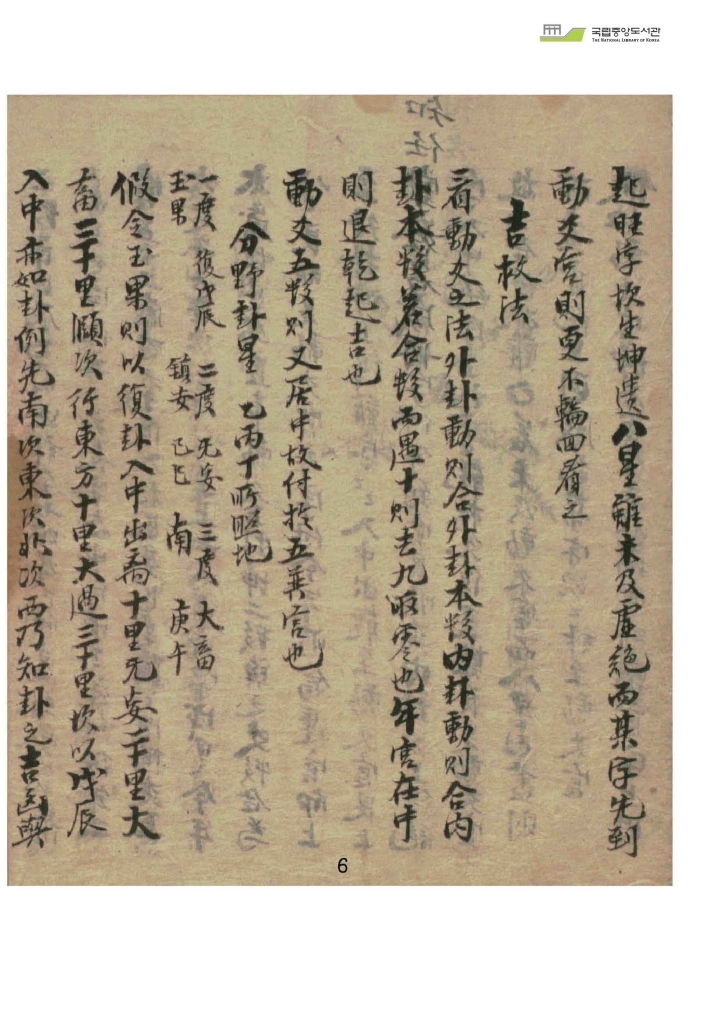 국립중앙도서관
THE NATIONAL LIBRARY OF KOREA
起旺字坎生坤遺八星雖未及虛絶而某字先到
動爻宮則更不輪四看之
吉枚法
一看動爻之法外卦動則合外卦本數內卦動則合內
卦本數若合數而過十則去九取零也年宮在中
則退乾起吉也
動爻五數則又居中故付於五黃宮也
分野卦星 乙丙丁所照地
一度 復戊辰 二度 无妄 三度 大畜
玉果 鎮安 己巳 南 庚午
假令玉果則以復卦入中出爲十里无妄二十里大
畜三十里頤次行東方十里大過二十里坎以戊辰
入中亦如卦例先南次東次北次西乃知卦之吉凶與
6